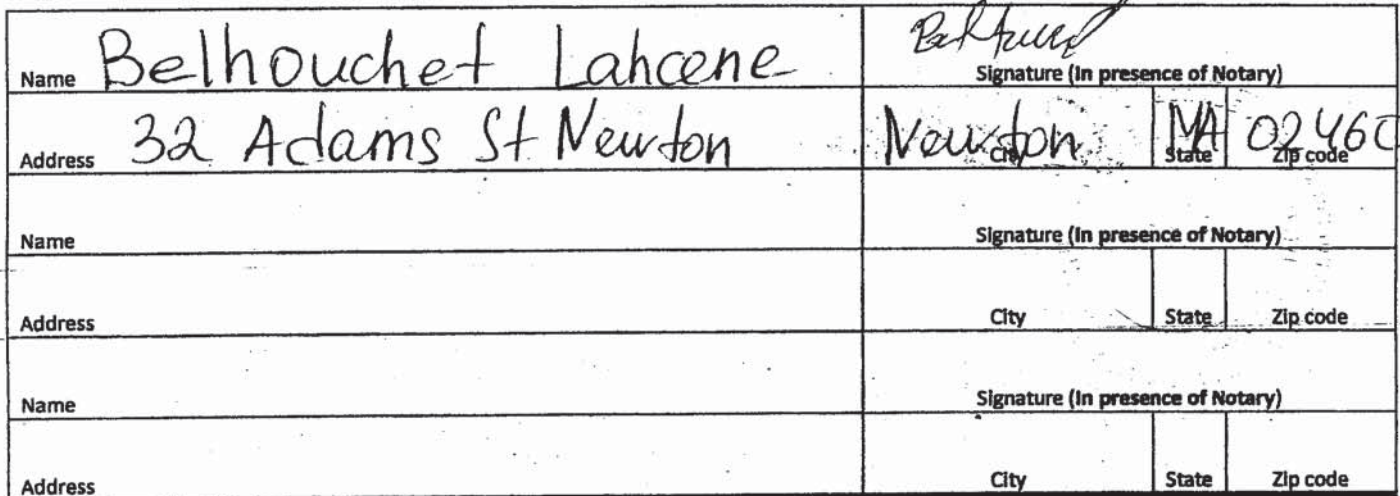 Belhouchet Lahcene
Name Signature (In presence of Notary)
32 Adams St Newton Newton MA 02460
Address City State Zip code
Name Signature (In presence of Notary)
Address City State Zip code
Name Signature (In presence of Notary)
Address City State Zip code